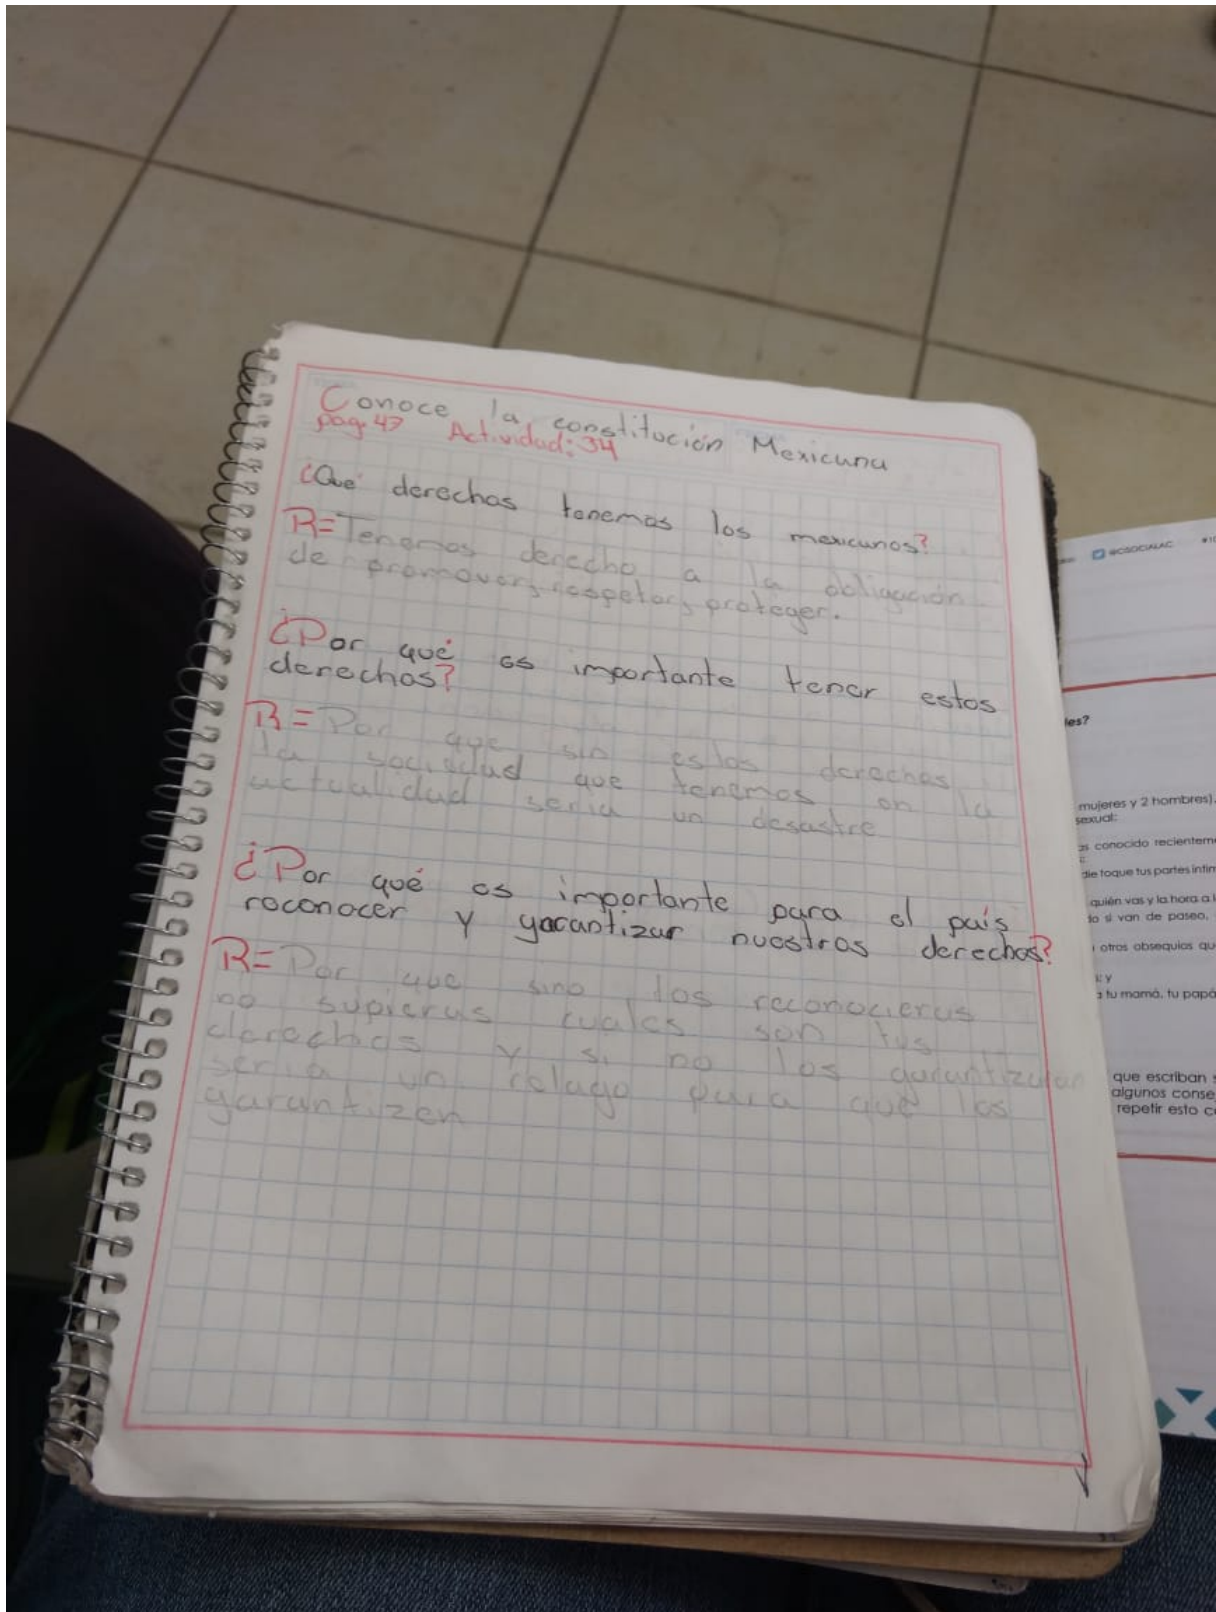 Conoce la constitución Mexicana
pag. 47 Actividad: 34
¿Que derechos tenemos los mexicanos?
R= Tenemos derecho a la obligación
de promover, respetar, proteger.
¿Por qué es importante tener estos
derechos?
R= Por que sin estos derechos
la sociedad que tenemos en la
actualidad seria un desastre
¿Por qué es importante para el país
reconocer y garantizar nuestros derechos?
R= Por que sino los reconocieras
no supieras cuales son tus
derechos y si no los garantizaran
seria un relago para que los
garantizen
@CSOCIALAC
les?
mujeres y 2 hombres).
sexual:
s conocido recientem
die toque tus partes íntim
quién vas y la hora a l
do si van de paseo,
otros obsequios qu
; y
a tu mamá, tu papá
que escriban s
algunos conse
repetir esto c